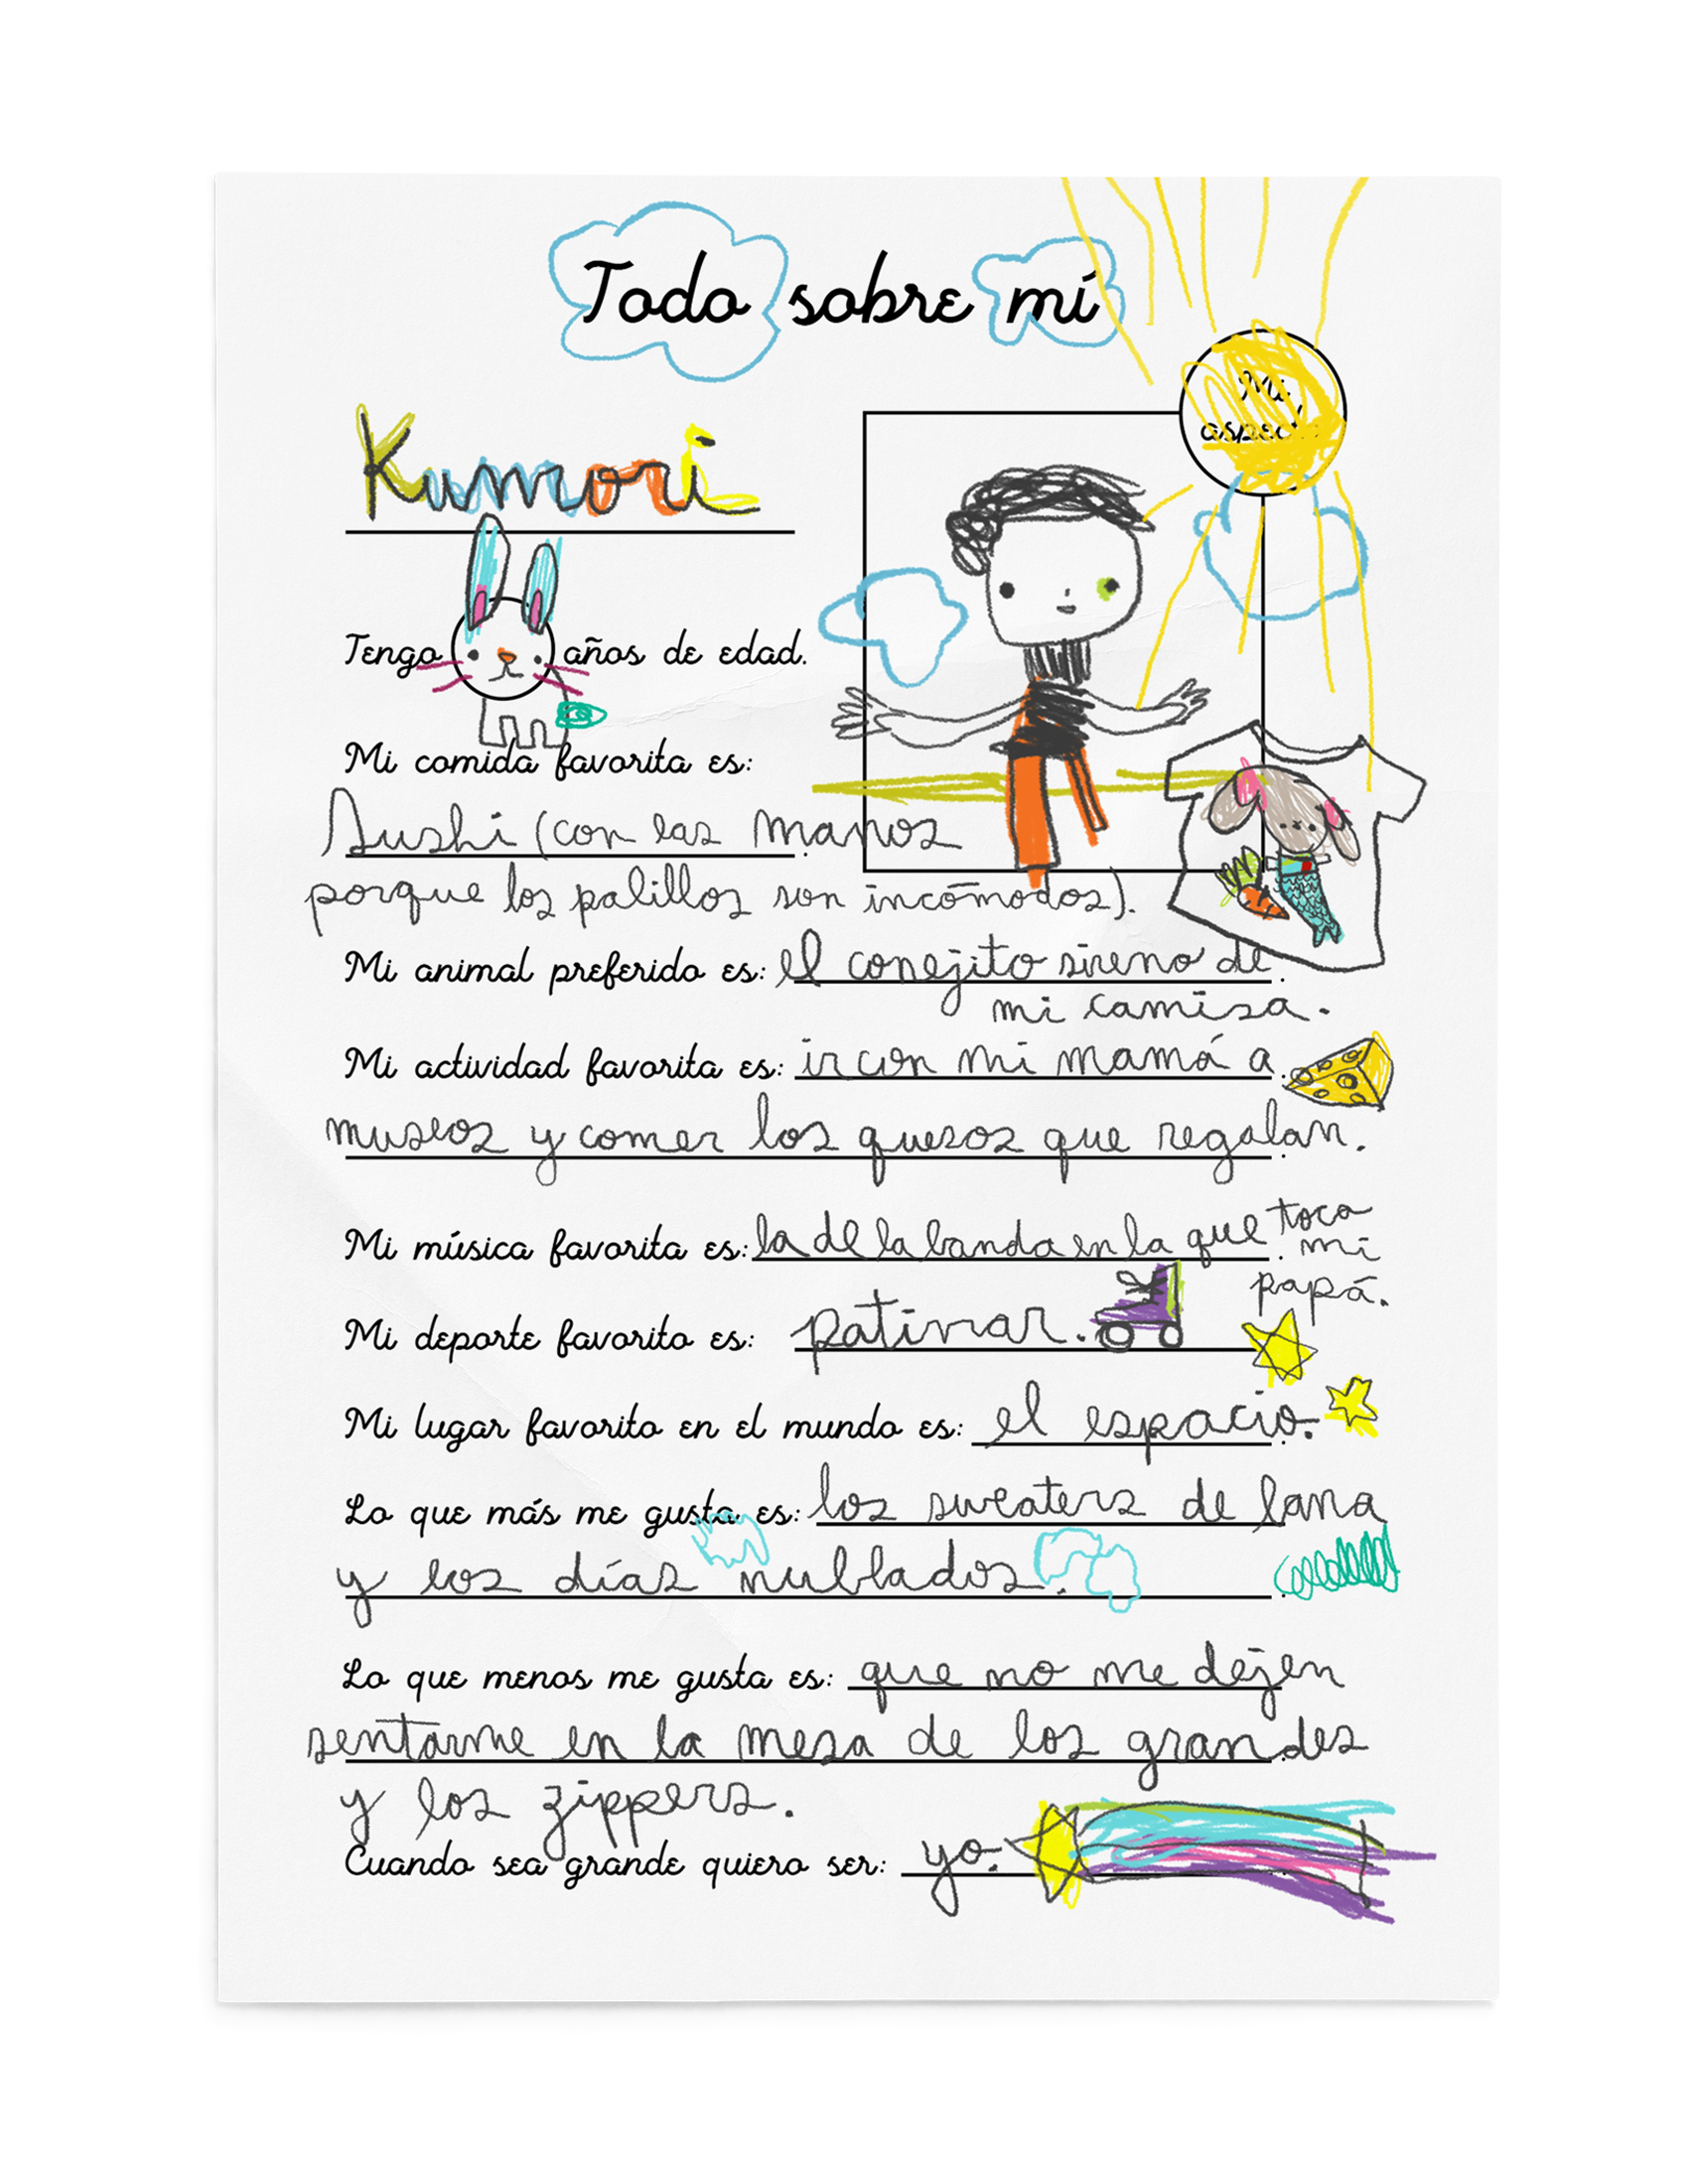 Todo sobre mí
Mi
aspecto
Kumori
Tengo años de edad.
Mi comida favorita es:
Sushi (con las manos
porque los palillos son incómodos).
Mi animal preferido es: el conejito sireno de
mi camisa.
Mi actividad favorita es: ir con mi mamá a
museos y comer los quesos que regalan.
Mi música favorita es: la de la banda en la que toca
mi
papá.
Mi deporte favorito es: patinar.
Mi lugar favorito en el mundo es: el espacio.
Lo que más me gusta es: los sweaters de lana
y los días nublados.
Lo que menos me gusta es: que no me dejen
sentarme en la mesa de los grandes
y los zippers.
Cuando sea grande quiero ser: yo.